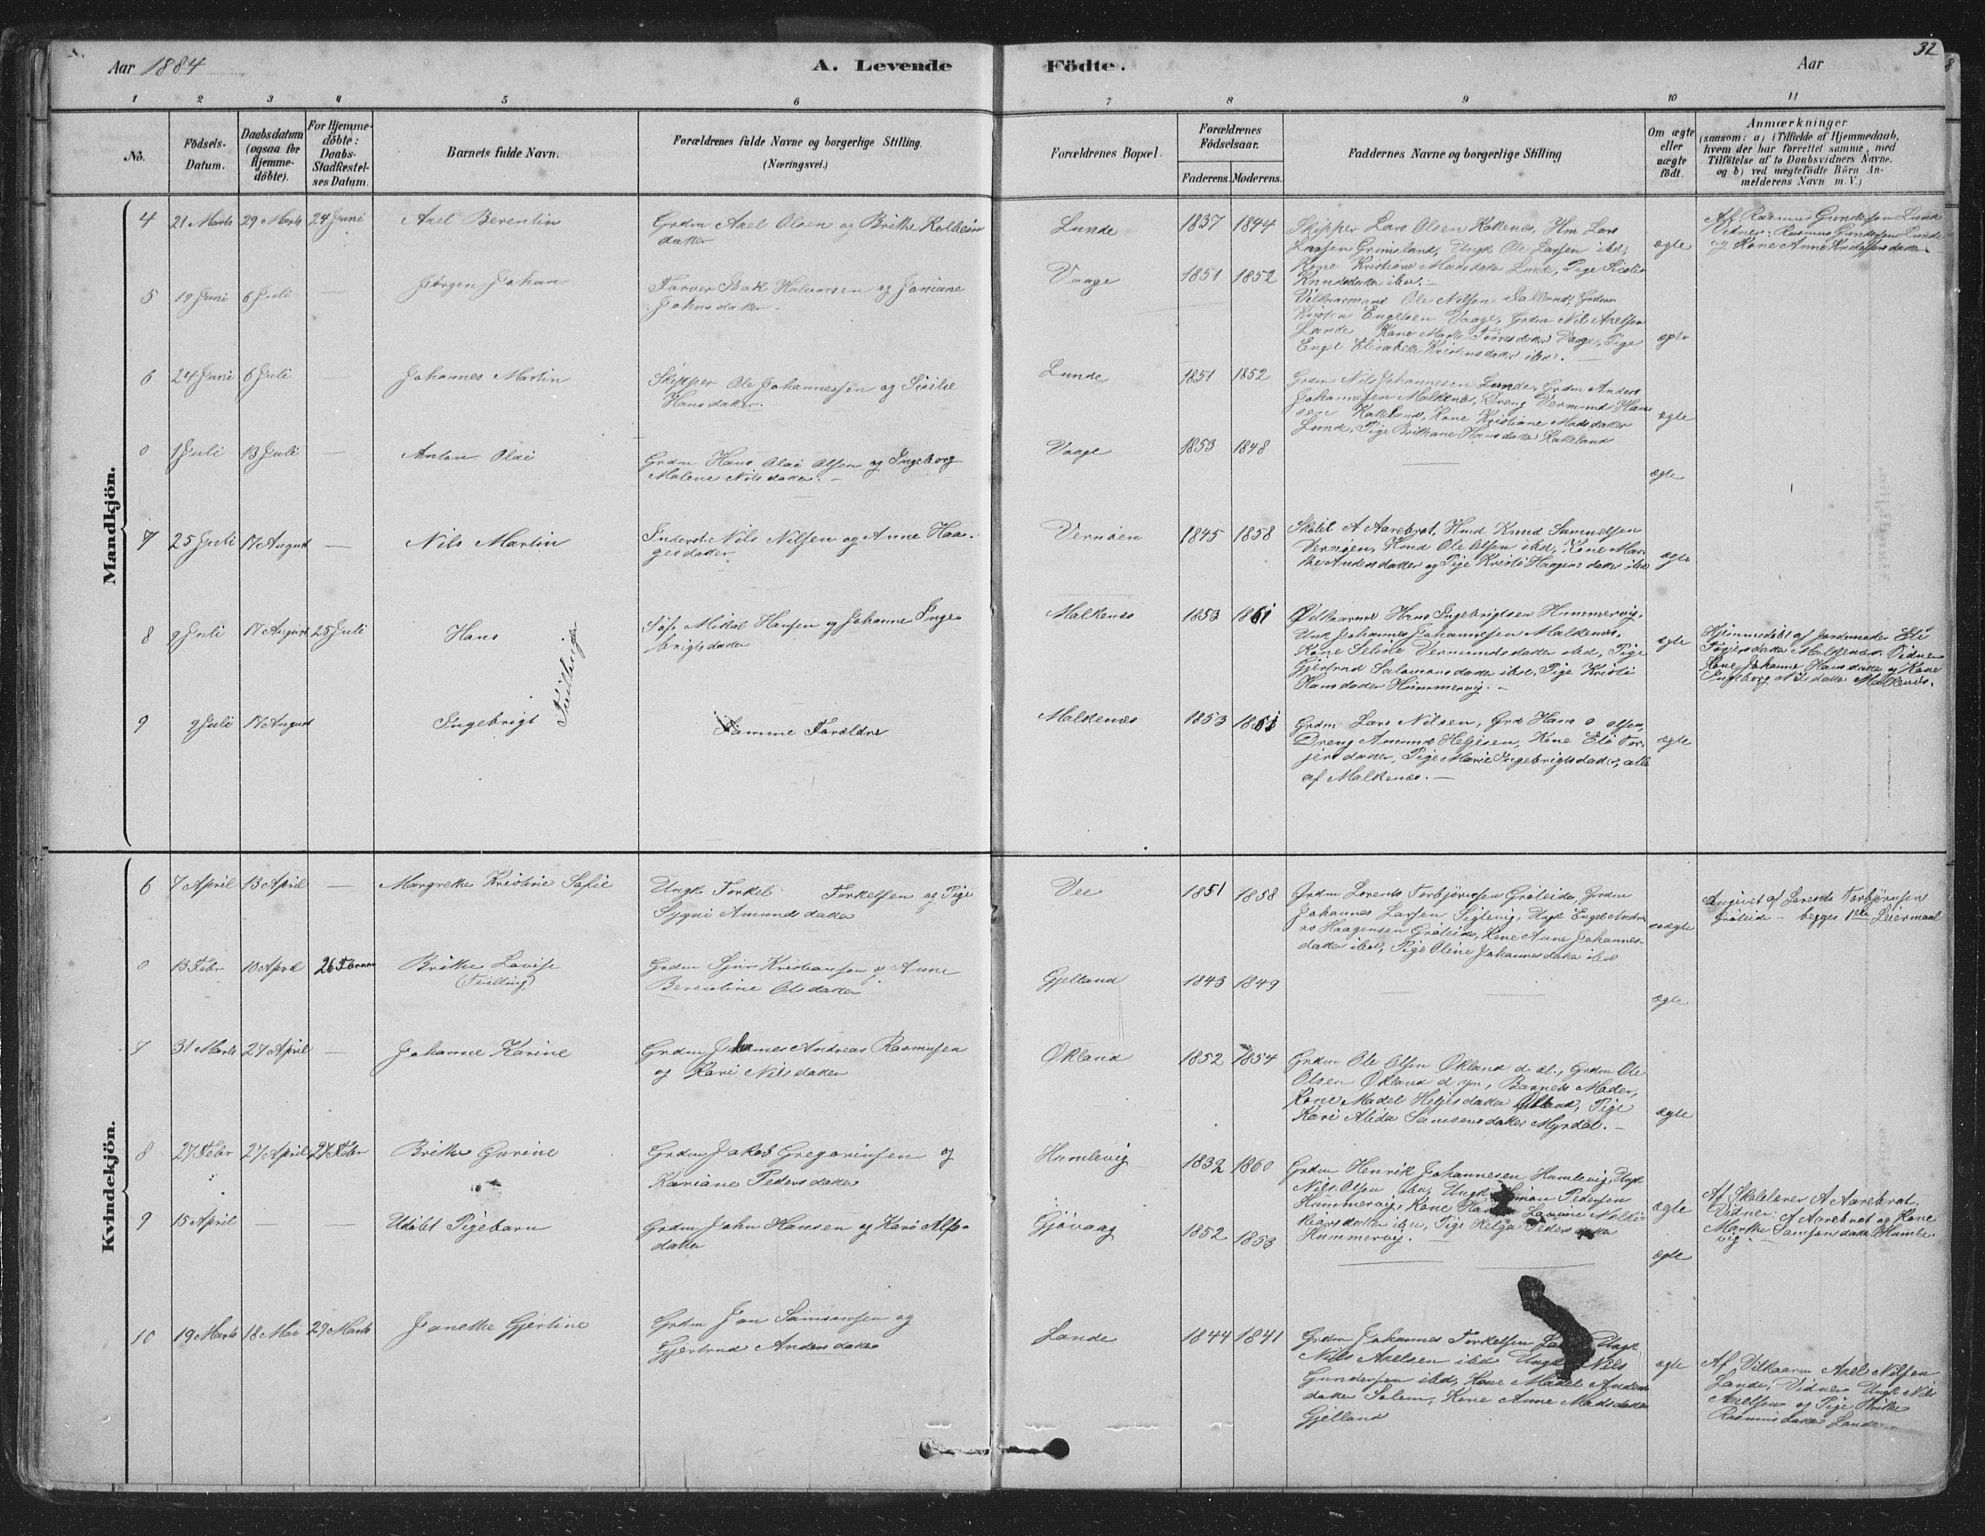 Aar 1884
A. Levende Födte.
Aar
32
1 2 3 4 5 6 7 8 9 10 11
No.
Födsels-Datum.
Daabsdatum (ogsaa for Hjemme-döbte).
For Hjemme-döbte: Daabs-Stadfæstel-ses Datum.
Barnets fulde Navn.
Forældrenes fulde Navne og borgerlige Stilling. (Næringsvei.)
Forældrenes Bopæl.
Forældrenes Födselsaar.
Faderens. Moderens.
Faddernes Navne og borgerlige Stilling
Om ægte eller uægte födt.
Anmærkninger
(saasom: a) i Tilfælde af Hjemmedaab, hvem der har forrettet samme, med Tilföielse af to Daabsvidners Navne, og b) ved uægtefödte Börn An-melderens Navn m. V.)
Mandkjön.
4 21 Marts 29 Marts 24 Juni Axel Berentin
Grdm Axel Olsen og Brithe Kolbeins
datter
Lunde 1837 1844
Skipper Lars Olsen
Larsen Grimsland, Ungk Ole Larsen ibd,
Kone Kristiane Madsdatter Lunde, Pige
Knudsdatter ibd.
ægte
Af Rasmus Gundersen Lunde
Vidner: Rasmus Gundersen Lunde
og Kone Anne
5 19 Juni 6 Juli — Jørgen Johan
Farver Halvorsen og
Johnsdatter
Vaage 1851 1852
Ole Nilsen
Engelsen Vaage, Grdm Nils Axelsen
Lande Kone Marthe Vaage, Pige
Engel Elisabeth Kristensdatter ibd.
ægte
6 24 Juni 6 Juli — Johannes Martin
Skipper Ole Johannessen og Sisilie
Hansdatter.
Lunde 1851 1852
Grdm Nils Johannesen Lunde, Grdm Anders
Johannesen Malkenes, Dreng Vermund Han
sen Kone Kristiane Madsdatter
Lunde, Pige Hansdatter
ægte
0 1 Juli 13 Juli — Anton Olai
Grdm Hans Olai Olsen og Ingeborg
Malene Nilsdatter. —
Vaage 1853 1848
ægte
7 25 Juli 17 August — Nils Martin
Inderst Nils Nilsen og Anne Haa-
gesdatter
Vernøen 1845 1858
Skolel A Aarebrot, Hmd Knud Samuelsen
Vernøen, Hmd Ole Olsen ibd, Kone Mar
the Andersdatter og Pige Kristi Haagensdatter ibd
ægte
8 9 Juli 17 August 25 Juli Hans
Tvillinger
Mikal Hansen og Johanne Inge-
brigtsdatter
Malkenes 1853 1861
Hans Ingebrigtsen Hummervig,
Ungk Johannes Johannesen Malkenes,
Kone Vermundsdatter ibd, Pige
Gjertrud Salamonsdatter ibd, Pige Kristi
Hansdatter Hummervig. —
ægte
Hjemmedøbt af Jordemoder Eli
Malkenes. Vidner
Kone Johanne Hansdatter og Kone
Ingeborg Nilsdatter Malkenes.
9 9 Juli 17 August Ingebrigt
Samme Forældre
Malkenes 1853 1861
Grdm Lars Nilsen, Hans O Olsen,
Dreng Amund Helgesen, Kone Eli Tor-
jersdatter, Pige Marie Ingebrigtsdatter, alle
af Malkenes. —
ægte
Kvindekjön.
6 7 April 13 April — Margrethe Kristine Sofie
Ungk Torkel Torkelsen og Pige
Sygni Amundsdatter
Vee 1851 1858
Grdm Lorents Torbjørnsen Grøteide, Grdm
Johannes Larsen Siglevig, Ungk Engel Andre
as Haagensen Grøteide, Kone Anne Johannes-
datter ibd, Pige Oline Johannesdatter ibd
uægte
Angivet af Lorents Torbjørnsen
Grøteide — begges 1ste Leiermaal
0 13 Febr 10 April 26 Februar Brithe Lovise
(Tvilling)
Grdm Sjur Kristiansen og Anne
Berentine Olsdatter
Gjelland 1843 1849
ægte
7 31 Marts 27 April — Johanne Karine
Grdm Andreas Rasmusen
og Kari Nilsdatter
Økland 1852 1854
Grdm Ole Olsen Økland d. æl., Grdm Ole
Olsen Økland d yn, Barnets Moder,
Kone Madel Helgesdatter Økland, Pige
Kari Alida Samsonsdatter Myrdal. —
ægte
8 27 Febr 27 April 27 Febr Brithe Gurine
Grdm Jakob Gregoriussen og
Kariane Pedersdatter
Humlevig 1832 1860
Grdm Henrik Johannesen Humlevig, Ungk
Nils Olsen ibd, Ungk Simon Pedersen
Hummervig, Kone
ibd, Pige Helga Pedersdatter
Hummervig. —
ægte
Af Skolelærer A Aarebrot,
Vidner: A Aarebrot og Kone
Marthe Samsonsdatter Humle-
vig
9 15 April — — Udøbt Pigebarn
Grdm John Hansen og Kari
datter
Gjøvaag 1852 1853
ægte
10 19 Marts 18 Mai 29 Marts Janette Gjertine
Grdm Jon Samsonsen og
Gjertrud Andersdatter
Lande 1844 1841
Grdm Johannes Torkelsen Ungk
Nils Axelsen ibd Ungk Nils
Gundersen ibd, Kone Madel Anders
datter Kone Anne Madsdatter
Gjelland
ægte
Af Axel Nilsen
Lande, Vidner Ungk Nils
Axelsen og Pige Brithe
Rasmusdatter Lande